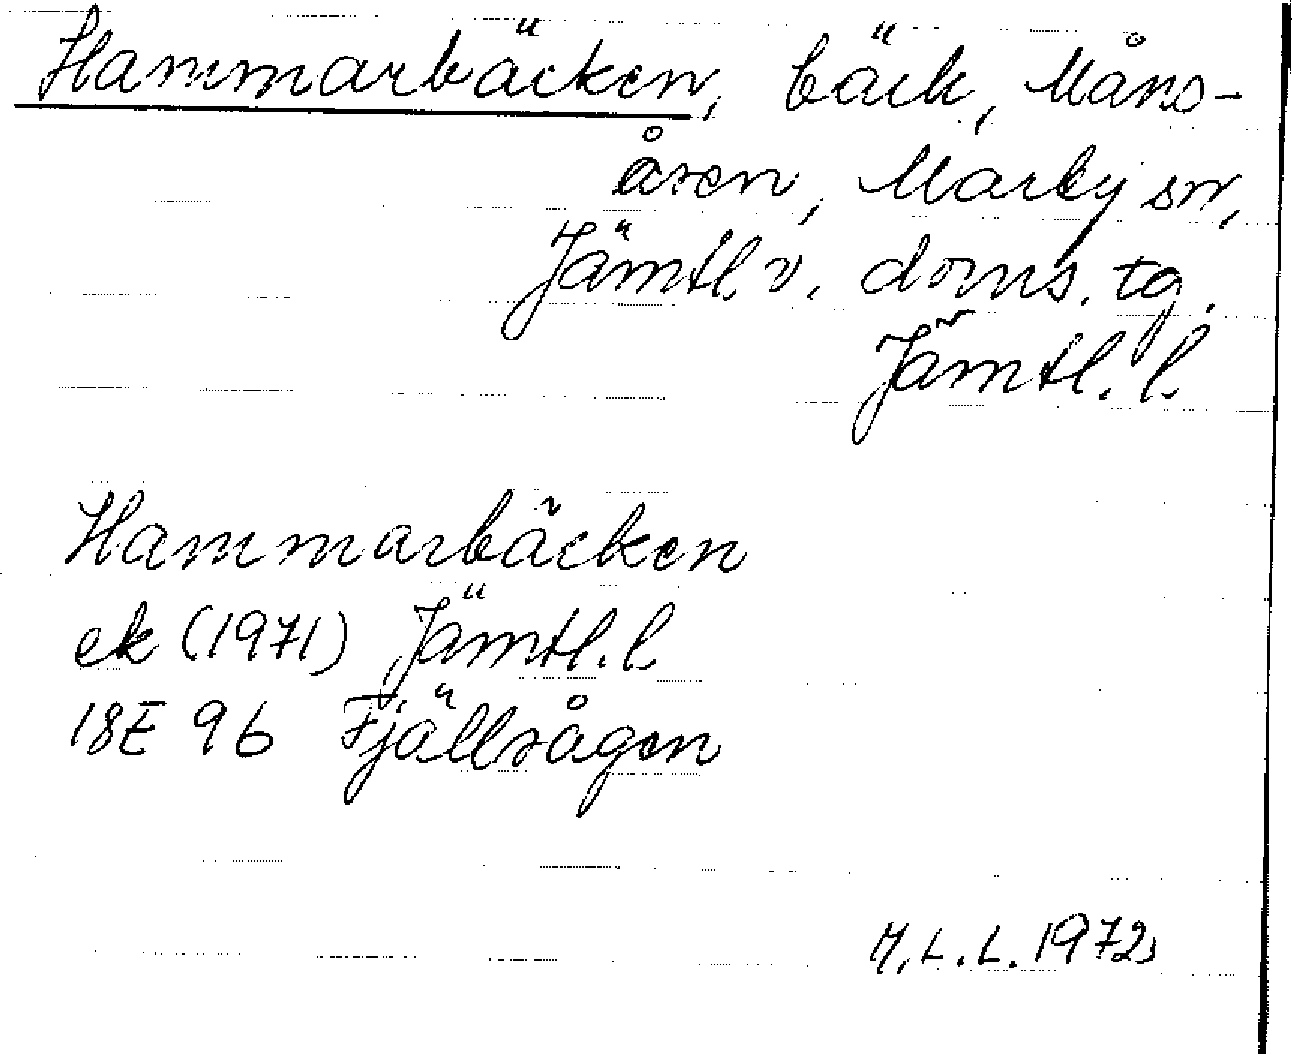 Hammarbäcken, bäck, Måns-
åsen, Marby sn,
Jämtl. v. doms. tg.
Jämtl. l.
Hammarbäcken
ek (1971) Jämtl. l
18E 9b Fjällsågen
M.L.L. 1972